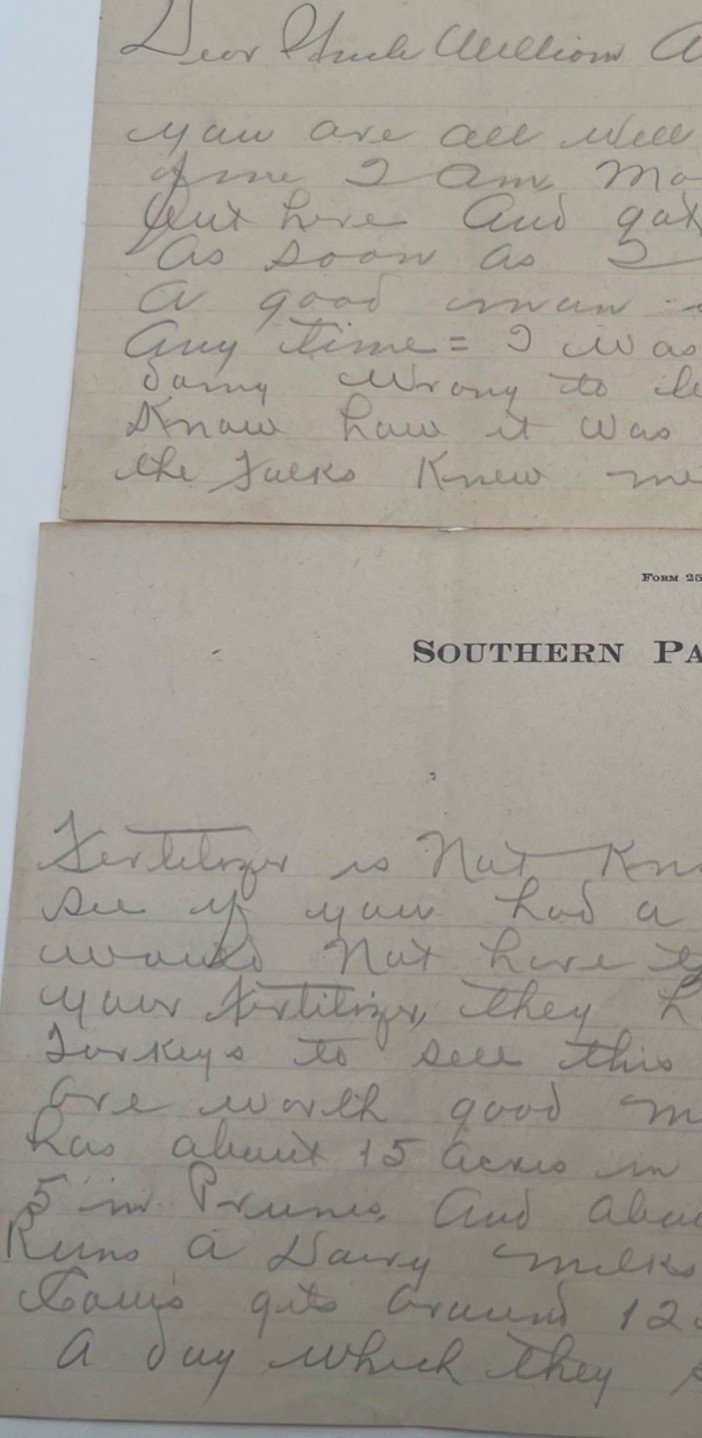 Dear Uncle William A
you are all well
fine I am. Mo
out here And got
As soon as I
A good man
Any time = I was
doing wrong to le
Know how it was
the Folks Knew me
FORM 25
SOUTHERN PA
Fertilizer is Not Kno
see if you had a
would Not have to
your fertilizer, they h
Turkeys to sell this
are worth good m
has about 15 Acres in
5 in Prunes, And abou
Runs a Dairy milks
Cows gets around 12
A day which they s